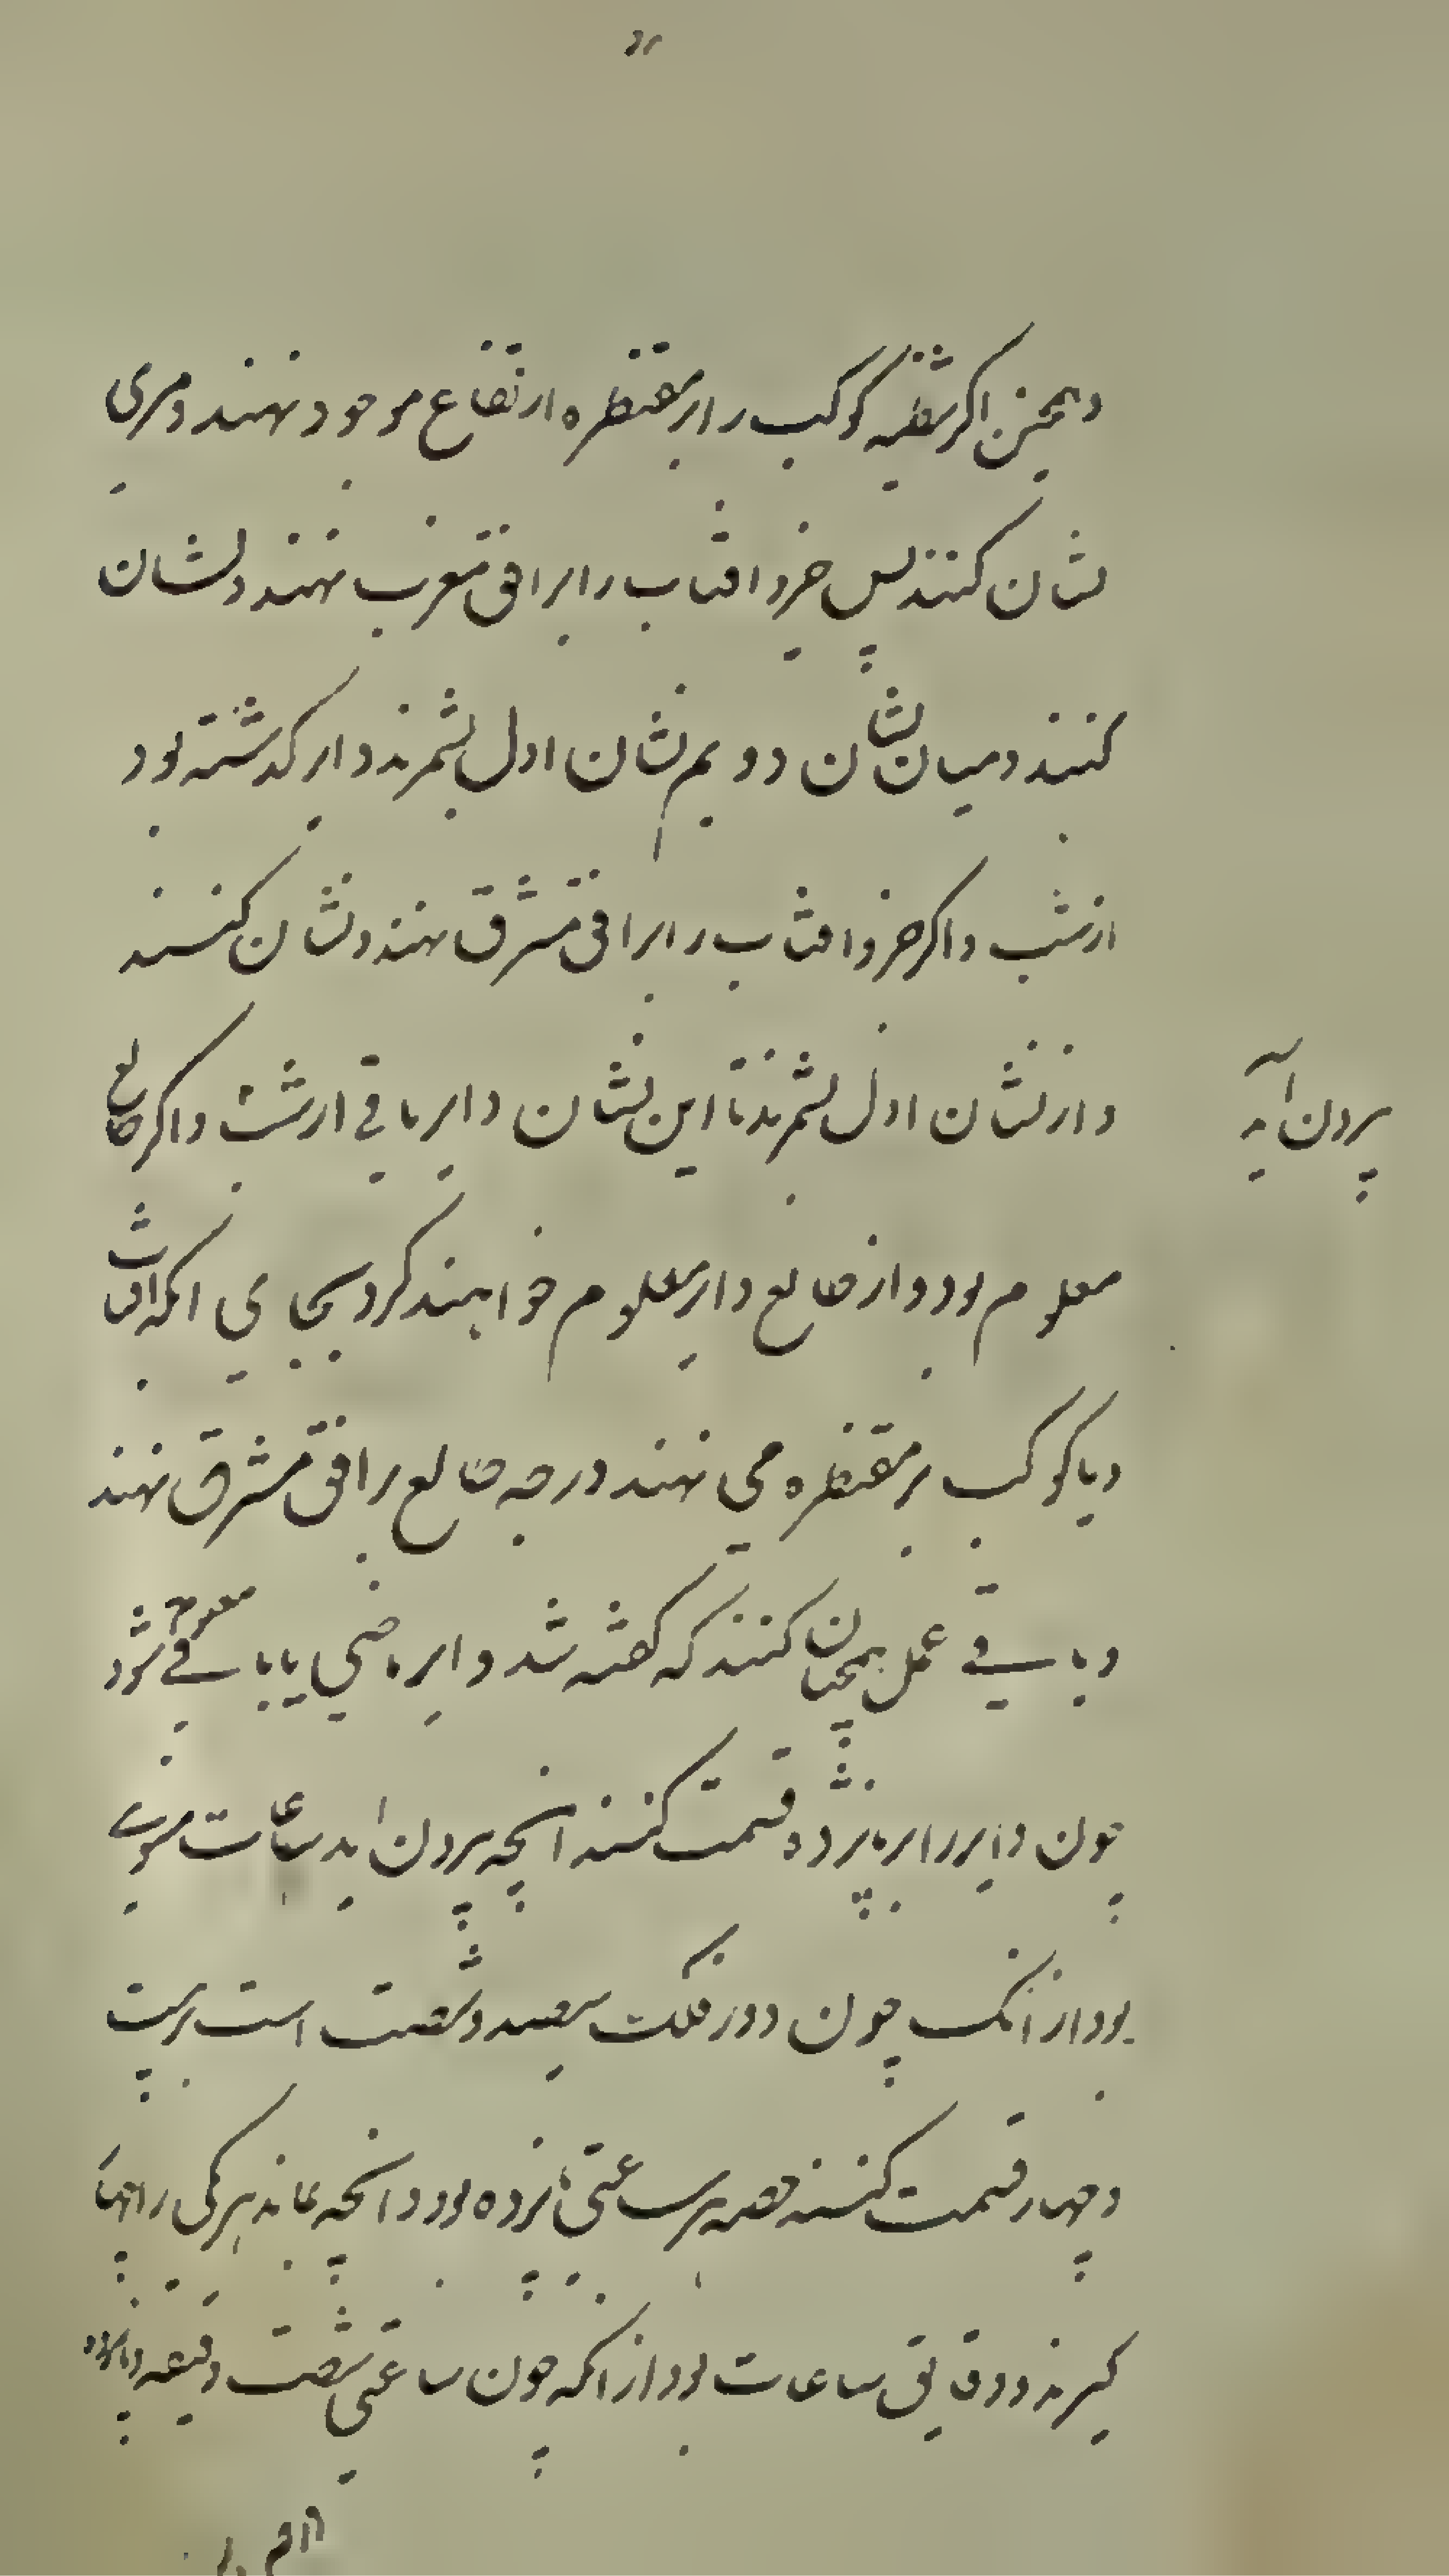 وهمچنین اگر شظیه کوکب را بر مقنطره ارتفاع موجود نهند و مری
نشان کنند پس جزو افتاب را بر افق مغرب نهند و نشان
کنند و میان نشان دویم نشان اول بشمرند دایر گذشته بود
از شب و اگر جزو افتاب را بر افق مشرق نهند و نشان کنند
و از نشان اول بشمرند تا این نشان دایر باقی از شب و اگر طالع
بیرون آید
معلوم بود و از طالع دایر معلوم خواهند کرد بجای انکه افتاب
و یا کوکب بر مقنطره می نهند درجه طالع بر افق مشرق نهند
و باقی عمل همچنان کنند که گفته شد دایر ماضی یا باقی معلوم شود
چون دایر را بر پانزده قسمت کنند انچه بیرون اید ساعات مستوی
بود از انک چون دور فلک سیصد و شصت است بر بیست
و چهار قسمت کنند حصه هر ساعتی پانزده بود و انچه بماند هر یکی را چهار
گیرند و دقایق ساعات بود از انکه چون ساعتی شصت دقیقه و پانزده